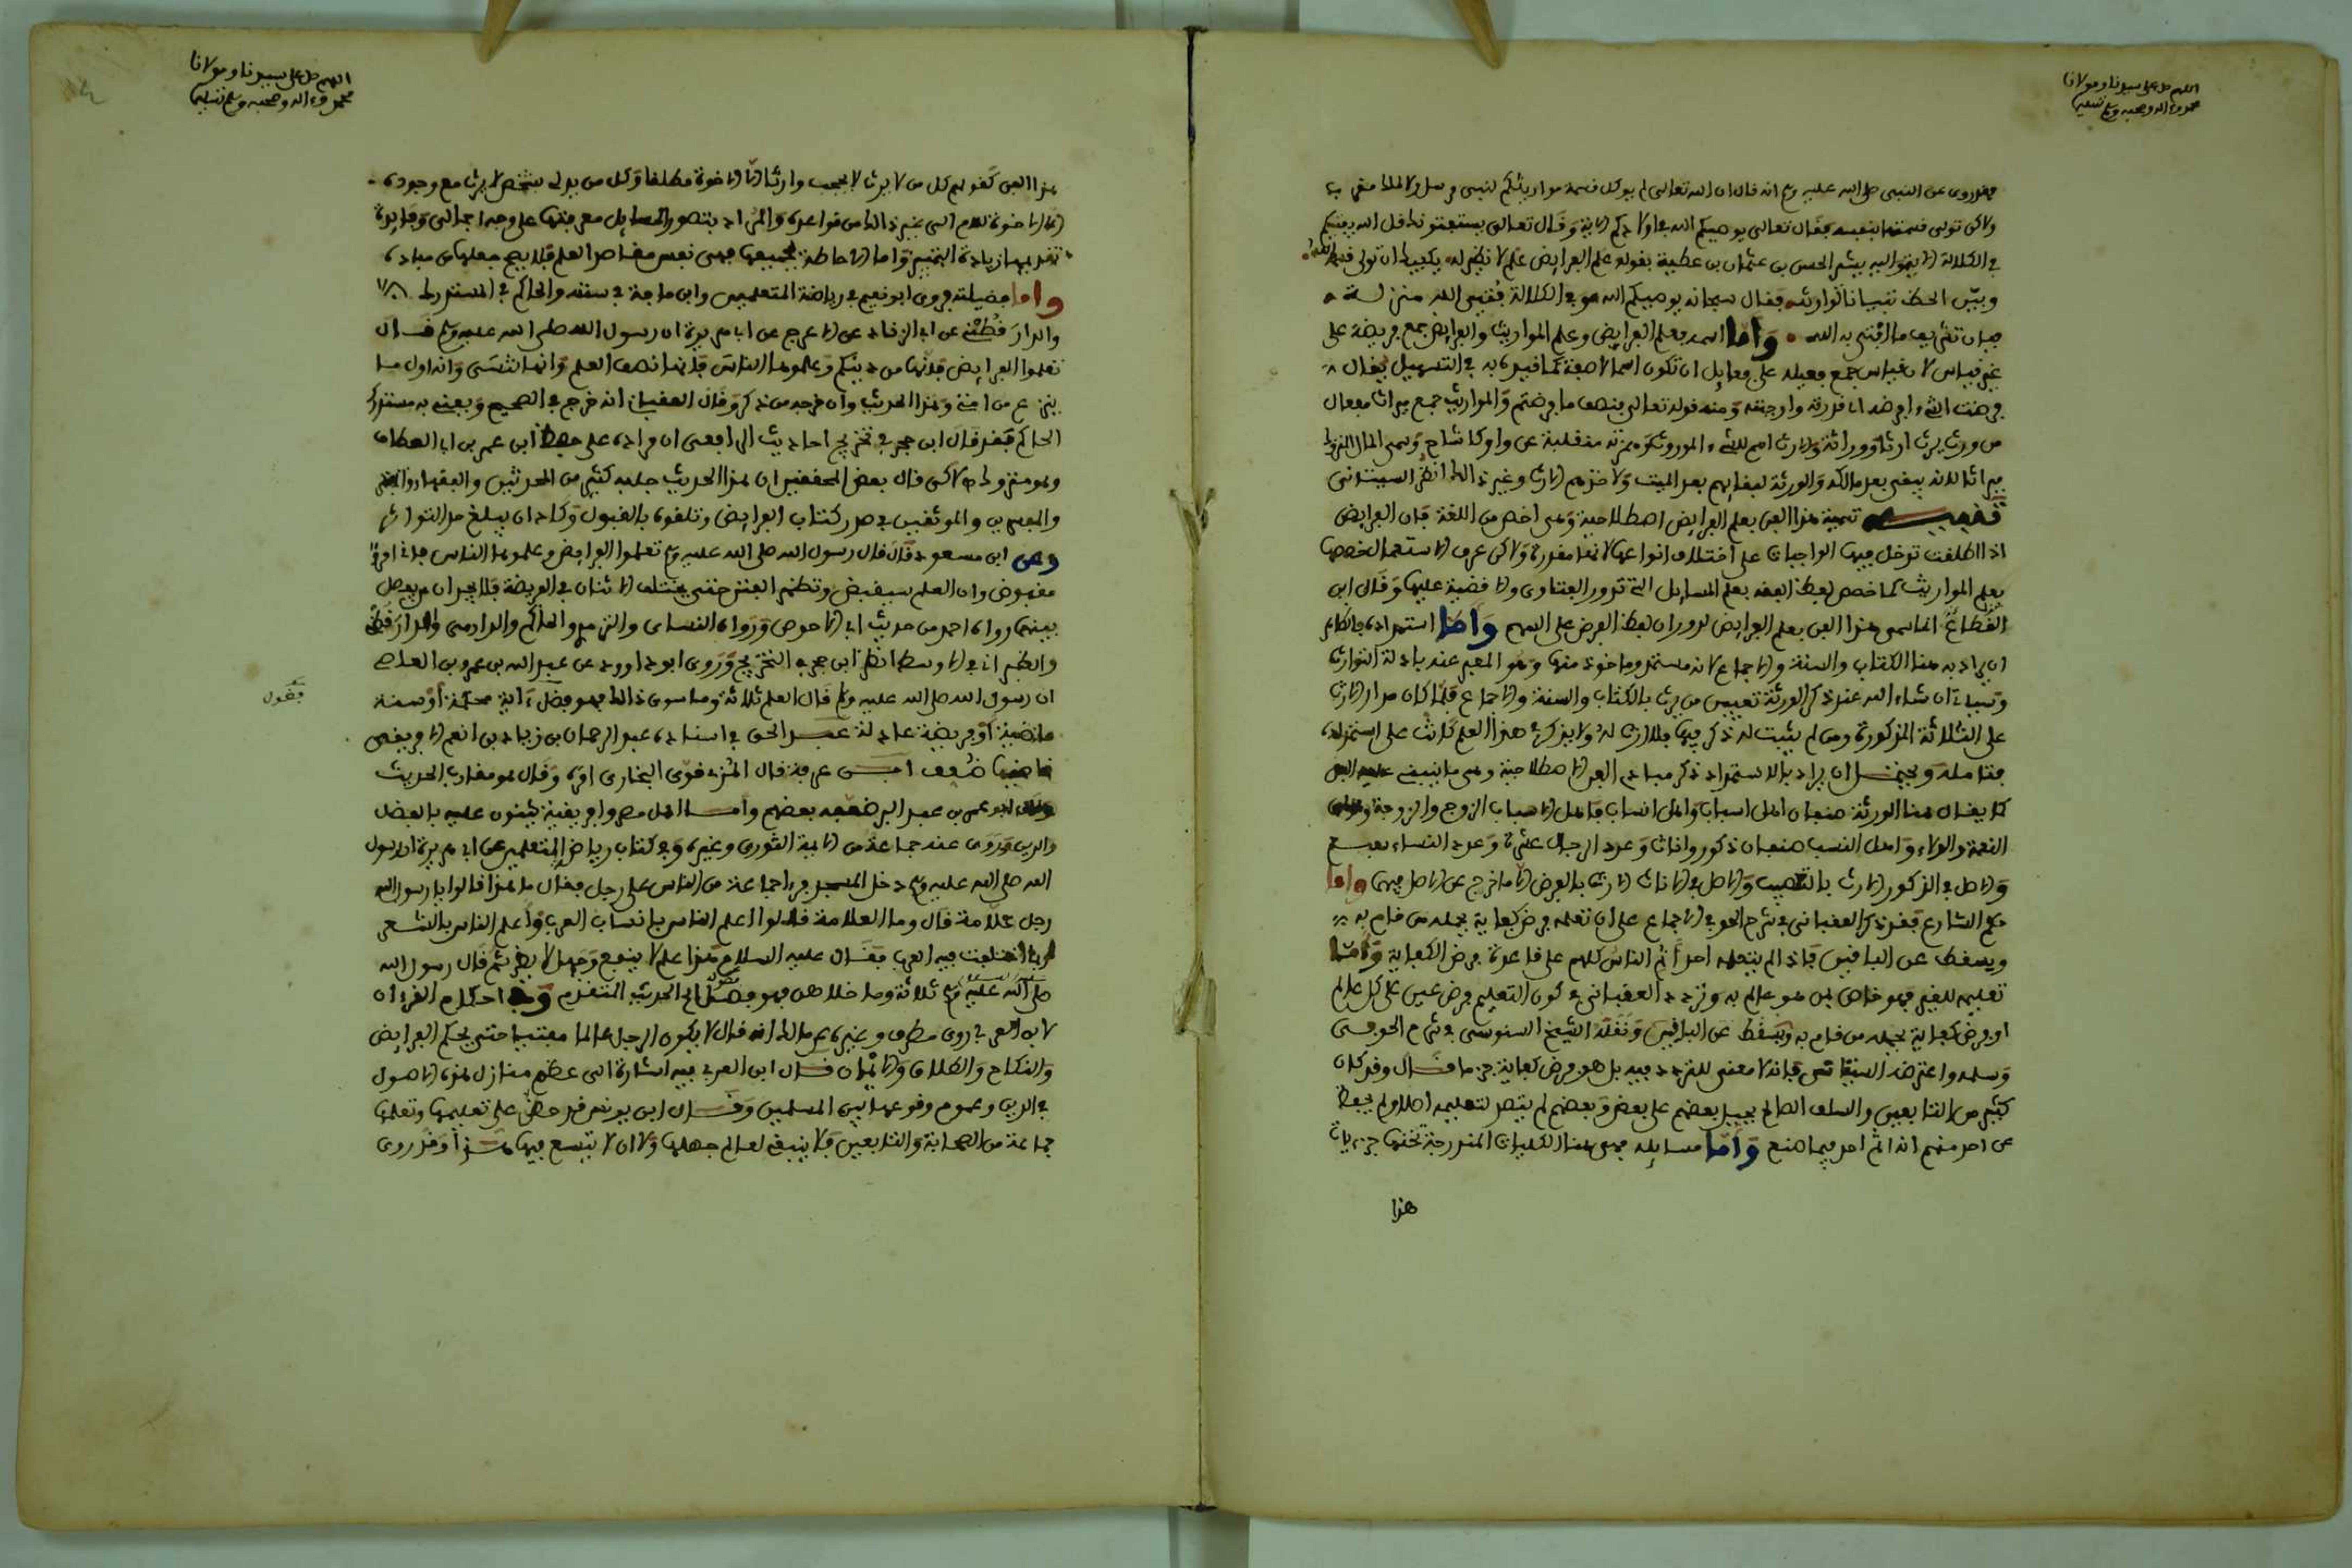 اللهم صل على سيدنا ومولانا
محمد وءاله وصحبه وسلم تسليما
فقد روي عن النبي صلى الله عليه وسلم انه قال ان الله تعالى لم يوكل قسمة مواريثكم لنبي مرسل ولا ملك مقرب
ولاكن تولى قسمتها بنفسه فقال تعالى يوصيكم الله في اولادكم الاية وقال تعالى يستفتونك قل الله يفتيكم
في الكلالة الحسن بن عثمان بن عطية بقوله علم الفرايض علم لا نظير له يكفيك ان تولى قسمه الله
وبين الحظ تبيانا لوارثه فقال سبحانه يوصيكم الله هو في الكلالة يفتي الله منزله
فبان تشريف ما افتى به الله واما اسمه فعلم الفرايض وعلم المواريث والفرايض جمع فريضة على
غير قياس لان قياس جمع فعيلة على فعايل ان تكون اسما لا صفة كما قيده به في التسهيل يقال
فرضت الشيء افرضه اذا قدرته واوجبته ومنه قوله تعالى فنصف ما فرضتم والمواريث جمع ميراث مفعال
من ورث يرث ارثا ووراثة والارث اسم للشيء الموروث وهمزته منقلبة عن واو كاشاح وسمي المال المتروك
ميراثا لانه يبقى بعد مالكه والورثة لبقايهم بعد الميت ولاخذهم الارث وغير ذلك انظر السبتاني
تنبيه تسمية هذا الفن بعلم الفرايض اصطلاحية وهي اخص من اللغة فان الفرايض
اذا اطلقت تدخل فيها الواجبات على اختلاف انواعها لانها مقدرة ولاكن عرف الاستعمال خصها
بعلم المواريث كما خصص لفظ الفقه بعلم المسايل التي تدور الفتاوى والاقضية عليها وقال ابن
انما سمي هذا الفن بعلم الفرايض لدوران لفظ الفرض على السهم واما استمداده فالظاهر
ان يراد به هنا الكتاب والسنة والاجماع لانه مستمد وماخوذ منها وهو المعبر عنه بادلة التوارث
وسياتي ان شاء الله عند ذكر الورثة تعيين من يرث بالكتاب والسنة والاجماع فلما كان مدار الارث
على الثلاثة المذكورة ومن لم يثبت له ذكر فيها فلا ارث له ولا يذكر في هذا العلم كانت على استمداده
فتامله ويحتمل ان يراد بالاستمداد ذكر مبادي الفن الاصطلاحية وهي ما ينبني عليه الفن
كما يقال هنا الورثة صنفان اهل اسباب واهل انساب فاهل الاسباب الزوج والزوجة
النعمة والولاء واهل النسب صنفان ذكور واناث وعدد الرجال عشرة وعدد النساء سبع
والاصل في الذكور الارث بالتعصيب والاصل في الاناث الارث بالفرض الا ما خرج عن الاصل فيهما واما
حكم الشارع فقد ذكر العقباني في شرح الحوفي الاجماع على ان تعلمه فرض كفاية يحمله من قام به
ويسقط عن الباقين فاذا لم يتعلمه احد اثم الناس كلهم على قاعدة فرض الكفاية واما
تعليمه للغير فهو خاص بمن هو عالم به وتردد العقباني في كون التعليم فرض عين على كل عالم
او فرض كفاية يحمله من قام به ويسقط عن الباقين ونقله الشيخ السنوسي في شرح الحوفي
وسلمه واعترضه السبتاني فانه لا معنى للتردد فيه بل هو فرض كفاية جزما قال وقد كان
كثير من التابعين والسلف الصالح يحيل بعضهم على بعض وبعضهم لم يتصد لتعليمه اصلا ولم يحفظ
عن احد منهم انه اثم احد فيما صنع واما مسايله فهي هنا الكليات المندرجة تحتها جزييات
هذا
اللهم صل على سيدنا ومولانا
محمد وءاله وصحبه وسلم تسليما
هذا الفن كقولهم كل من لا يرث لا يحجب وارثا الا الاخوة مطلقا وكل من يدلي بشخص لا يرث مع وجوده
الا الاخوة للام الى غير ذلك من قواعده والمراد بتصور المسايل معرفتها على وجه اجمالي وفايدة
تقديمها زيادة التمييز واما الاحاطة بجميعها فهي نفس مقاصد العلم فلا يصح جعلها من مباديه
واما فضيلته فروى ابو نعيم في رياضة المتعلمين وابن ماجة في سننه والحاكم في المستدرك
والدارقطني عن ابي الزناد عن الاعرج عن ابي هريرة ان رسول الله صلى الله عليه وسلم قال
تعلموا الفرايض فانها من دينكم وعلموها الناس فانها نصف العلم وانها تنسى وانه اول ما
ينزع من امتي وهذا الحديث وان خرجه من ذكر وقال العقباني انه خرج في الصحيح ويعني به مستدرك
الحاكم فقد قال ابن حجر في تخريج احاديث الرافعي ان مداره على حفص ابن عمر بن ابي العطاف
وهو متروك ه لاكن قال بعض المحققين ان هذا الحديث جلبه كثير من المحدثين والفقهاء
والموثقين في صدر كتاب الفرايض وتلقوه بالقبول وكاد ان يبلغ حد التواتر
وعن ابن مسعود قال قال رسول الله صلى الله عليه وسلم تعلموا الفرايض وعلموها الناس فاني امرؤ
مقبوض وان العلم سيقبض وتظهر الفتن حتى يختلف الاثنان في الفريضة فلا يجدان من يفصل
بينهما رواه احمد من حديث ابي الاحوص ورواه النساي والترمذي والحاكم والدارمي والدارقطني
والطبراني في الاوسط انظر ابن حجر في التخريج وروى ابو داوود عن عبد الله بن عمرو بن العاص
ان رسول الله صلى الله عليه وسلم قال العلم ثلاثة وما سوى ذلك فهو فضل ءاية محكمة او سنة
ماضية او فريضة عادلة عبد الحق في اسناده عبد الرحمان بن زياد بن انعم الافريقي
ضعف ابن عرفة قال المزي قوى البخاري امره وقال هو مقارب الحديث
ابو عمر بن عبد البر ضعفه بعضهم واما اهل مصر وافريقية يثنون عليه بالفضل
والدين وروى عنه جماعة من الايمة الثوري وغيره وفي كتاب رياض المتعلمين عن ابي هريرة ان رسول
الله صلى الله عليه وسلم دخل المسجد فرءا جماعة من الناس على رجل فقال ما هذا قالوا يا رسول الله
رجل علامة قال وما العلامة قالوا اعلم الناس بانساب العرب واعلم الناس بالشعر
اختلفت فيه العرب فقال عليه السلام هذا علم لا ينفع وجهل لا يضر ثم قال رسول الله
صلى الله عليه وسلم ثلاثة وما خلاهن فهو فضل الحديث المتقدم وفي احكام القرءان
لابن العربي روى مطرف وغيره عن مالك انه قال لا يكون الرجل عالما مفتيا حتى يحكم الفرايض
والنكاح والطلاق والايمان قال ابن العربي فيه اشارة الى عظم منازل هذه الاصول
في الدين وعموم وقوعها بين المسلمين وقال ابن يونس قد حض على تعليمها وتعلمها
جماعة من الصحابة والتابعين فلا ينبغي لعالم جهلها ولا ان لا يتسع فيها وقد روي